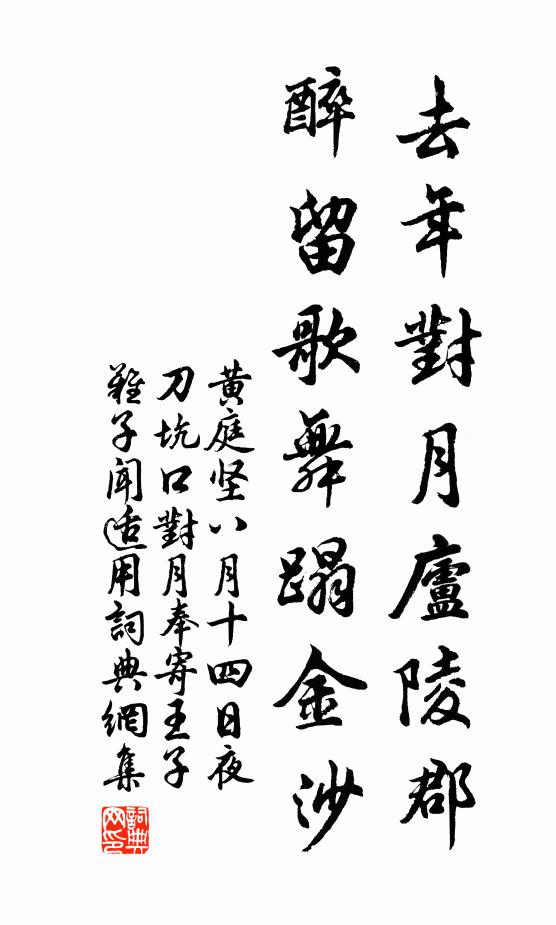 去年對月廬陵郡
醉留歌舞蹋金沙
黄庭坚八月十四日夜
刀坑口對月奉寄王子
難子聞适用詞典網集
詞典
网印